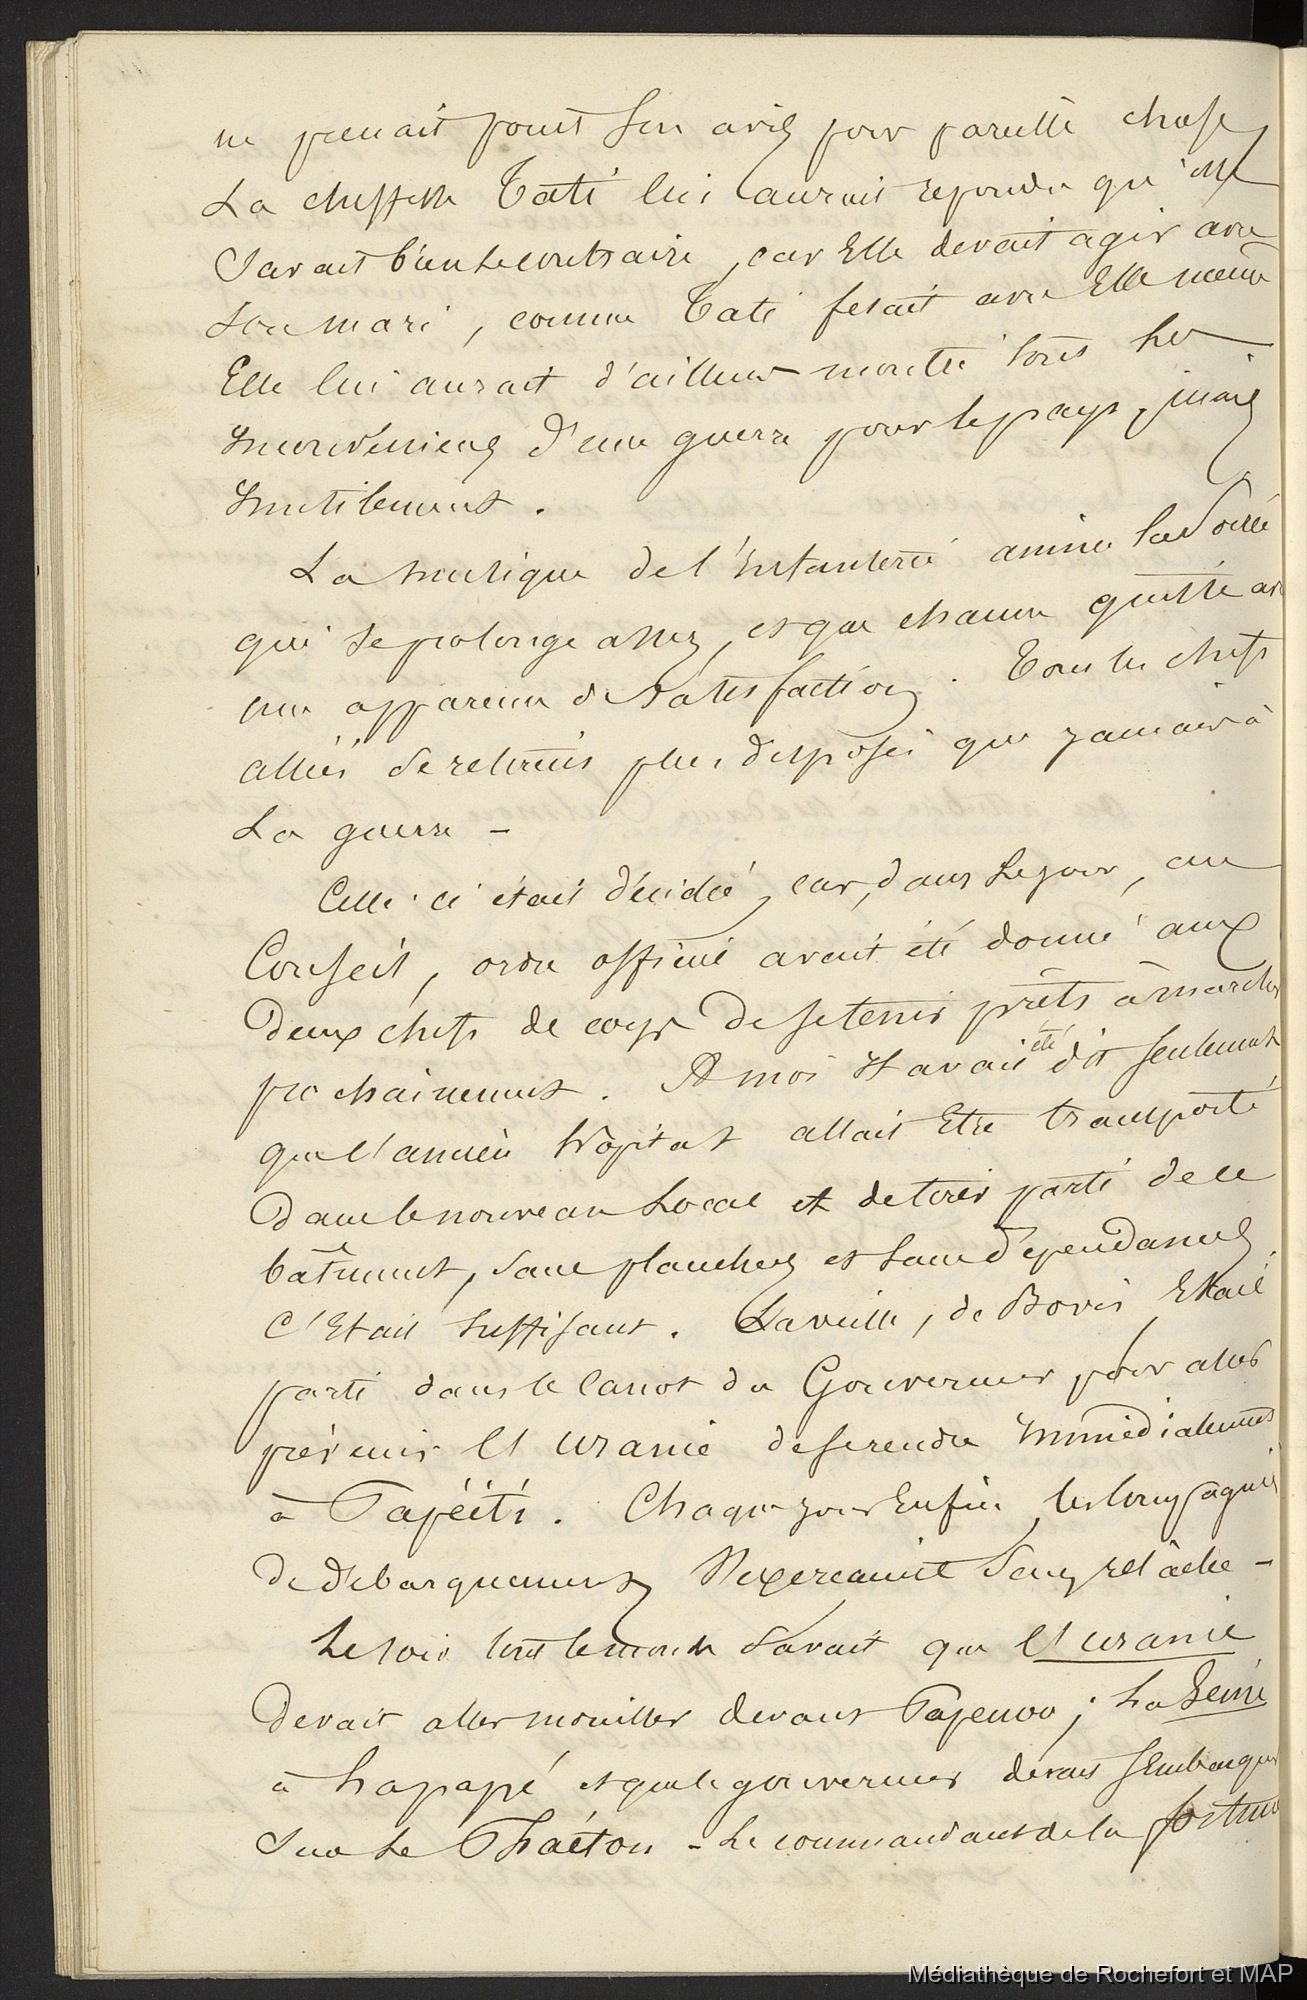 ne prenait point son avis pour pareille chose
La cheffesse Tati lui aurait repondu qu'elle
Savait bien le contraire, car Elle devait agir avec
Son mari, comme Tati fesait avec Elle meme
Elle lui aurait d'ailleurs montré tous les
Inconvéniens d'une guerre pour le pays, mais
Inutilement.
La musique de l'Infanterie anima la Soirée
qui se prolonge assez, et que chacun quitte avec
une apparence de Satisfaction. Tous les chefs
alliés Se retirent plus disposés que jamais à
La guerre -
Celle-ci était décidée, car, dans le jour, au
Conseil, ordre officiel avait été donné aux
Deux chefs de corps De se tenir prêts à marcher
prochainement. A moi Il avait été dit seulement
que l'ancien hôpital allait Etre transporté
Dans le nouveau Local et de tirer parti de ce
bâtiment, sans planches et sans dépendances.
C'Etait Suffisant. La veille, de Bovis Etait
parti dans le Canot du Gouverneur pour aller
prévenir l'Uranie de se rendre Immédiatement
à Papéiti. Chaque jour Enfin, les Compagnies
de débarquement S'exercaient Sans relâche -
Le soir tout le monde Savait que l'Uranie
Devait aller mouiller devant Papenoo; La Seine
à hapapé et que le gouverneur devait s'Embarquer
Sur Le Phaéton - Le commandant de la fortune